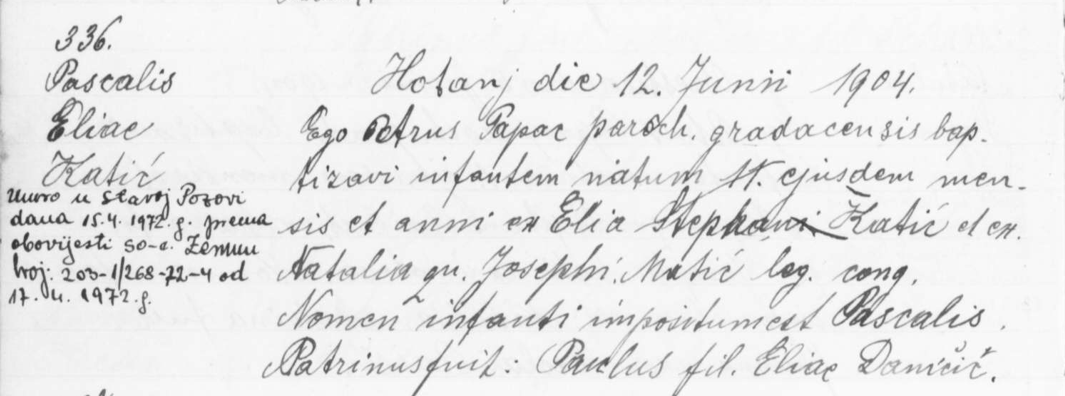 336.
Pascalis
Eliae
Katić
Umro u Staroj Pazovi
dana 15.4. 1972. g. prema
obavijesti SO-e. Zemun
broj: 203-1/268-72-4 od
17. 4. 1972. g.
Hotanj die 12. Junii 1904.
Ego Petrus Papac paroch. gradacensis bap-
tizavi infantem natum 11. ejusdem men-
sis et anni ex Elia Stephani Katić et ex
Natalia qu. Josephi Matić leg. conj.
Nomen infanti impositum est Pascalis.
Patrinus fuit: Paulus fil. Eliae Daničić.